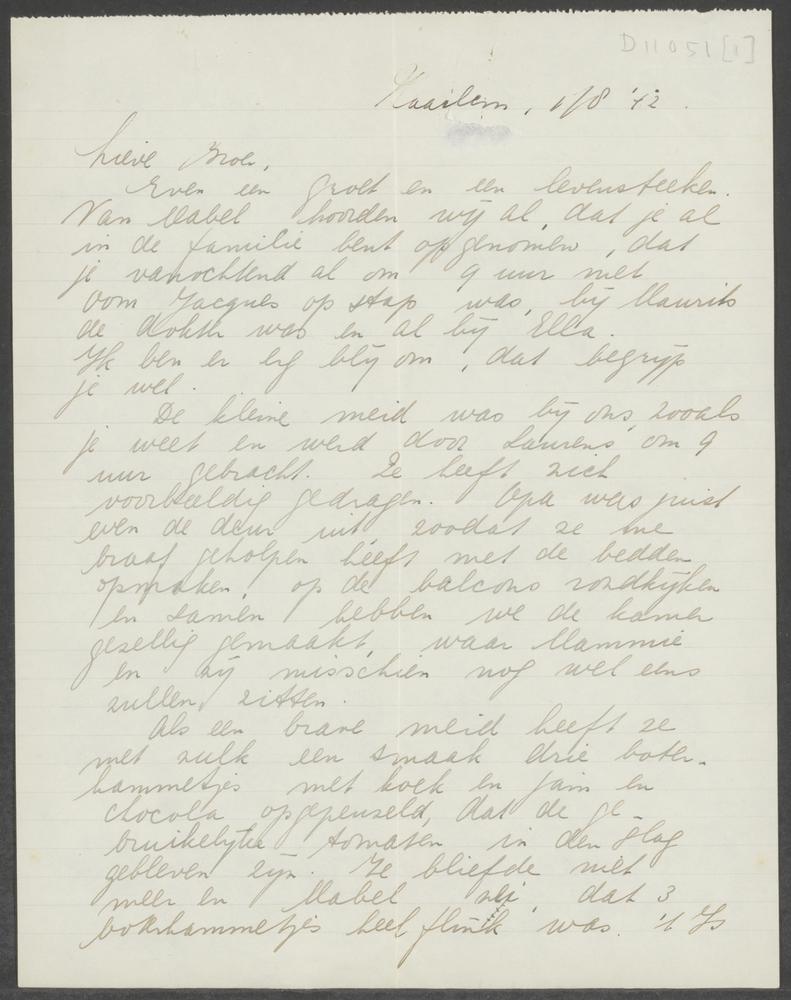 D11051[1]
Haarlem, 1/8 '42.
Lieve Broer,
Even een groet en een levensteeken.
Van Mabel hoorden wij al, dat je al
in de familie bent opgenomen, dat
je vanochtend al om 9 uur met
oom Jacques op stap was, bij Maurits
de dokter was en al bij Ella.
Ik ben er erg blij om, dat begrijp
je wel.
De kleine meid was bij ons, zooals
je weet en werd door Laurens om 9
uur gebracht. Ze heeft zich
voorbeeldig gedragen. Opa was juist
even de deur uit zoodat ze me
braaf geholpen heeft met de bedden
opmaken, op de balcons rondkijken
en samen hebben we de kamer
gezellig gemaakt, waar Mammie
en zij misschien nog wel eens
zullen zitten.
Als een brave meid heeft ze
met zulk een smaak drie boter-
hammetjes met koek en jam en
chocola opgepeuzeld, dat de ge-
bruikelijke tomaten in den slag
gebleven zijn. Ze bliefde niet
meer en Mabel zei, dat 3
boterhammetjes heel flink was. 't Is